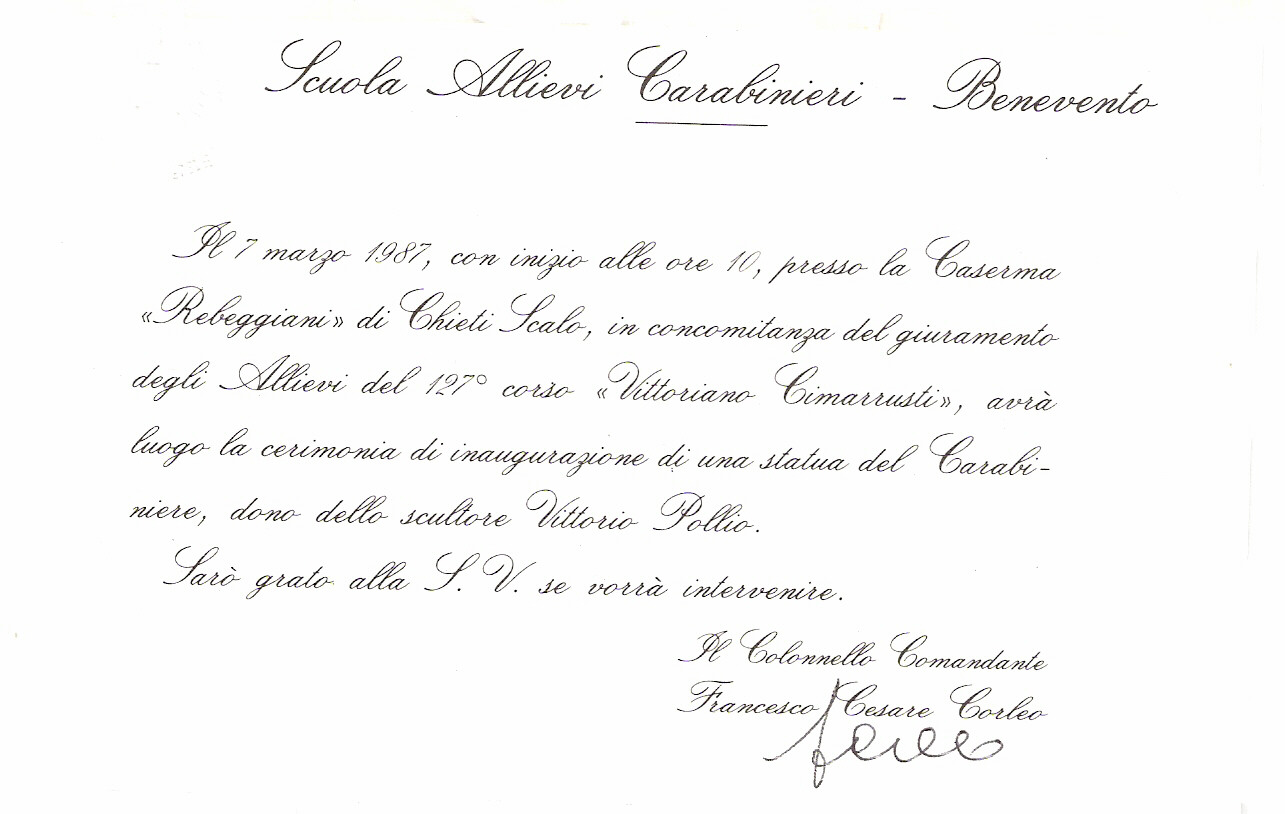 Scuola Allievi Carabinieri - Benevento
Il 7 marzo 1987, con inizio alle ore 10, presso la Caserma
«Rebeggiani» di Chieti Scalo, in concomitanza del giuramento
degli Allievi del 127° corso «Vittoriano Cimarrusti», avrà
luogo la cerimonia di inaugurazione di una statua del Carabi-
niere, dono dello scultore Vittorio Pollio.
Sarò grato alla S. V. se vorrà intervenire.
Il Colonnello Comandante
Francesco Cesare Corleo